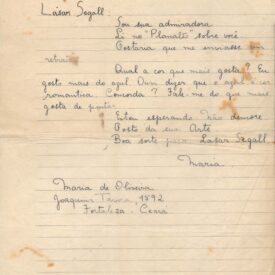 Lasar Segall.
Sou sua admiradora
Li no "Planalto" sobre você
Gostaria que me enviasse um
retrato
Qual a cor que mais gosta? Eu
gosto mais do azul. Ouvi dizer que o azul é cor
romantica. Concorda? Fale-me do que mais
gosta de pintar.
Estou esperando. Não demore
Gosto da sua Arte
Boa sorte para Lasar Segall
Maria
Maria de Oliveira
Joaquim Tavora, 1892
Fortaleza - Ceará